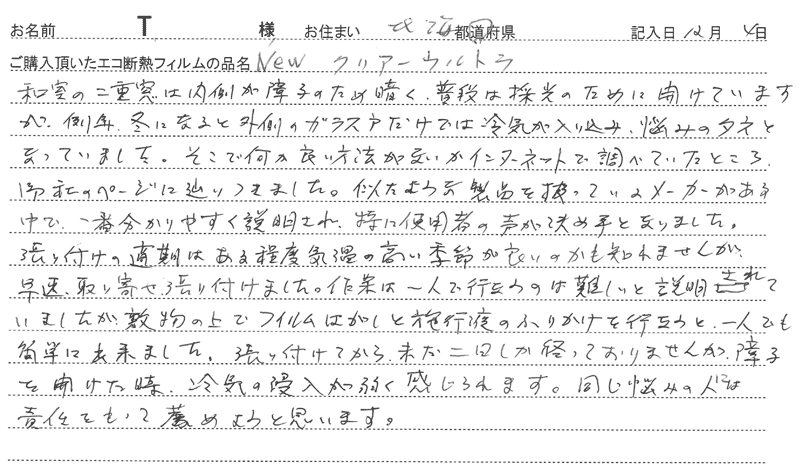 お名前 T 様 お住まい 北海道 都道府県 記入日 12月 4日
ご購入頂いたエコ断熱フィルムの品名 New クリアーウルトラ
和室の二重窓は内側が障子のため暗く、普段は採光のために開けています
が、例年、冬になると外側のガラス戸だけでは冷気が入り込み、悩みのタネと
なっていました。そこで何か良い方法が無いかインターネットで調べていたところ、
御社のページに辿りつきました。似たような製品を扱っているメーカーがある
中で、一番分かりやすく説明され、特に使用者の声が決め手となりました。
張り付けの適期はある程度気温の高い季節が良いのかも知れませんが、
早速、取り寄せ、張り付けました。作業は一人で行なうのは難しいと説明されて
いましたが敷物の上でフィルムはがしと施行液のふりかけを行なうと、一人でも
簡単に出来ました。張り付けてから、未だ二日しか経っておりませんが、障子
を開けた時、冷気の侵入が弱く感じられます。同じ悩みの人には
責任をもって薦めようと思います。